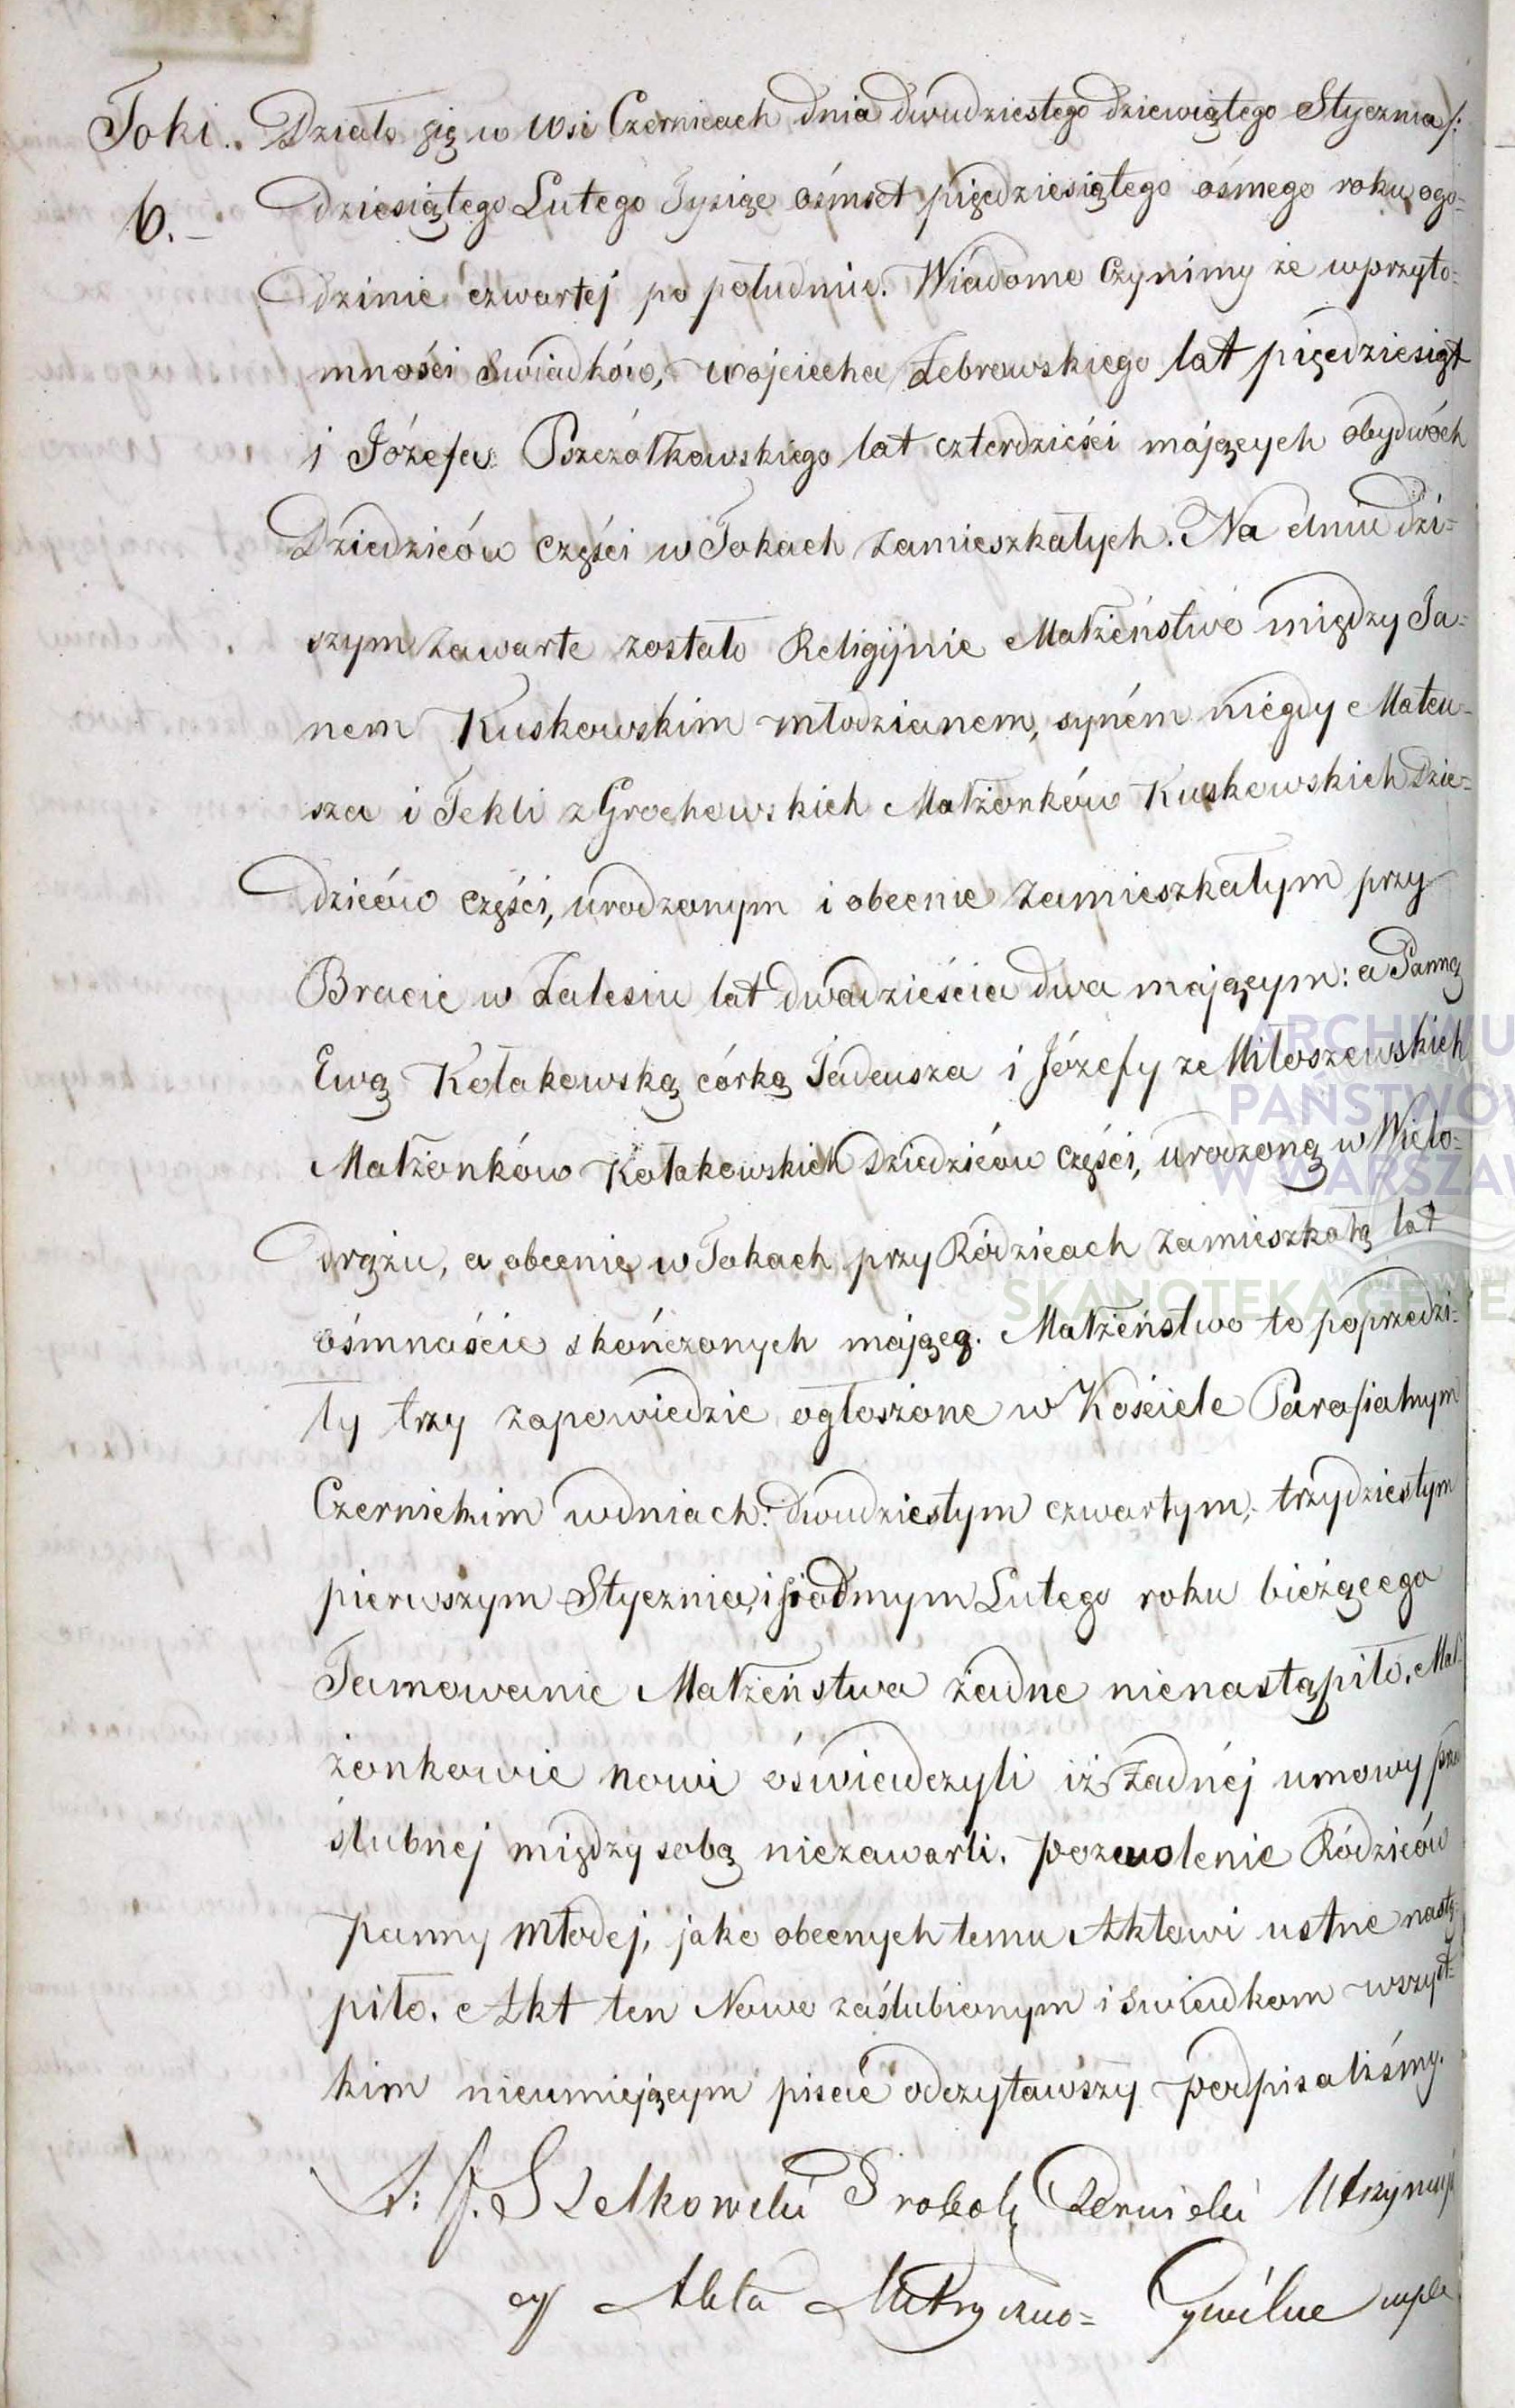 Toki. Działo się w Wsi Czernicach dnia dwudziestego dziewiątego Stycznia /:
6. dziesiątego Lutego Tysiąc ośmset pięcdziesiątego osmego roku, ogo=
dzinie czwartej po południu. Wiadomo Czynimy że wprzyto=
mności Swiadków, Wojciecha Żebrowskiego lat pięcdziesiąt
i Józefa Pszczółkowskiego lat czterdzieści mających obydwóch
Dziedziców części w Tokach zamieszkałych. Na dniu dzi=
szym zawarte zostało Religijnie Małżeństwo między Ja=
nem Kuskowskim młodzianem, synem niegdy Mateu=
sza i Tekli z Grochowskich Małżonków Kuskowskich Dzie=
dziców części, urodzonym i obecnie zamieszkałym przy
Bracie w Zalesiu lat dwadzieścia dwa mającym: a Panną
Ewą Kołakowską córką Tadeusza i Józefy ze Miłoszewskich
Małżonków Kołakowskich Dziedziców części, urodzoną w Wielo=
drążu, a obecnie w Tokach przy Ródzicach zamieszkałą lat
ośmnaście skończonych mającą. Małżeństwo to poprzedzi=
ły trzy zapowiedzie ogłoszone w Kościele Parafialnym
Czernickim wdniach: dwudziestym czwartym, trzydziestym
pierwszym Stycznia, i siodmym Lutego roku bieżącego
Tamowanie Małżeństwa żadne nienastąpiło. Mał
żonkowie nowi oświadczyli iż Żadnéj umowy prze
ślubnej między sobą niezawarli. Pozwolenie Ródziców
panny Młodej, jako obecnych temu Aktowi ustne nastą=
piło. Akt ten Nowo zaślubionym i swiadkom wszyst=
kim nieumiejącym pisać odczytawszy podpisaliśmy.
X: J. Szelkowski Proboszcz Czernicki Utrzymują
cy Akta Metryczno= Cywilne mpr
ARCHIWU
PAŃSTWOW
W WARSZAW
SKANOTEKA GENEA